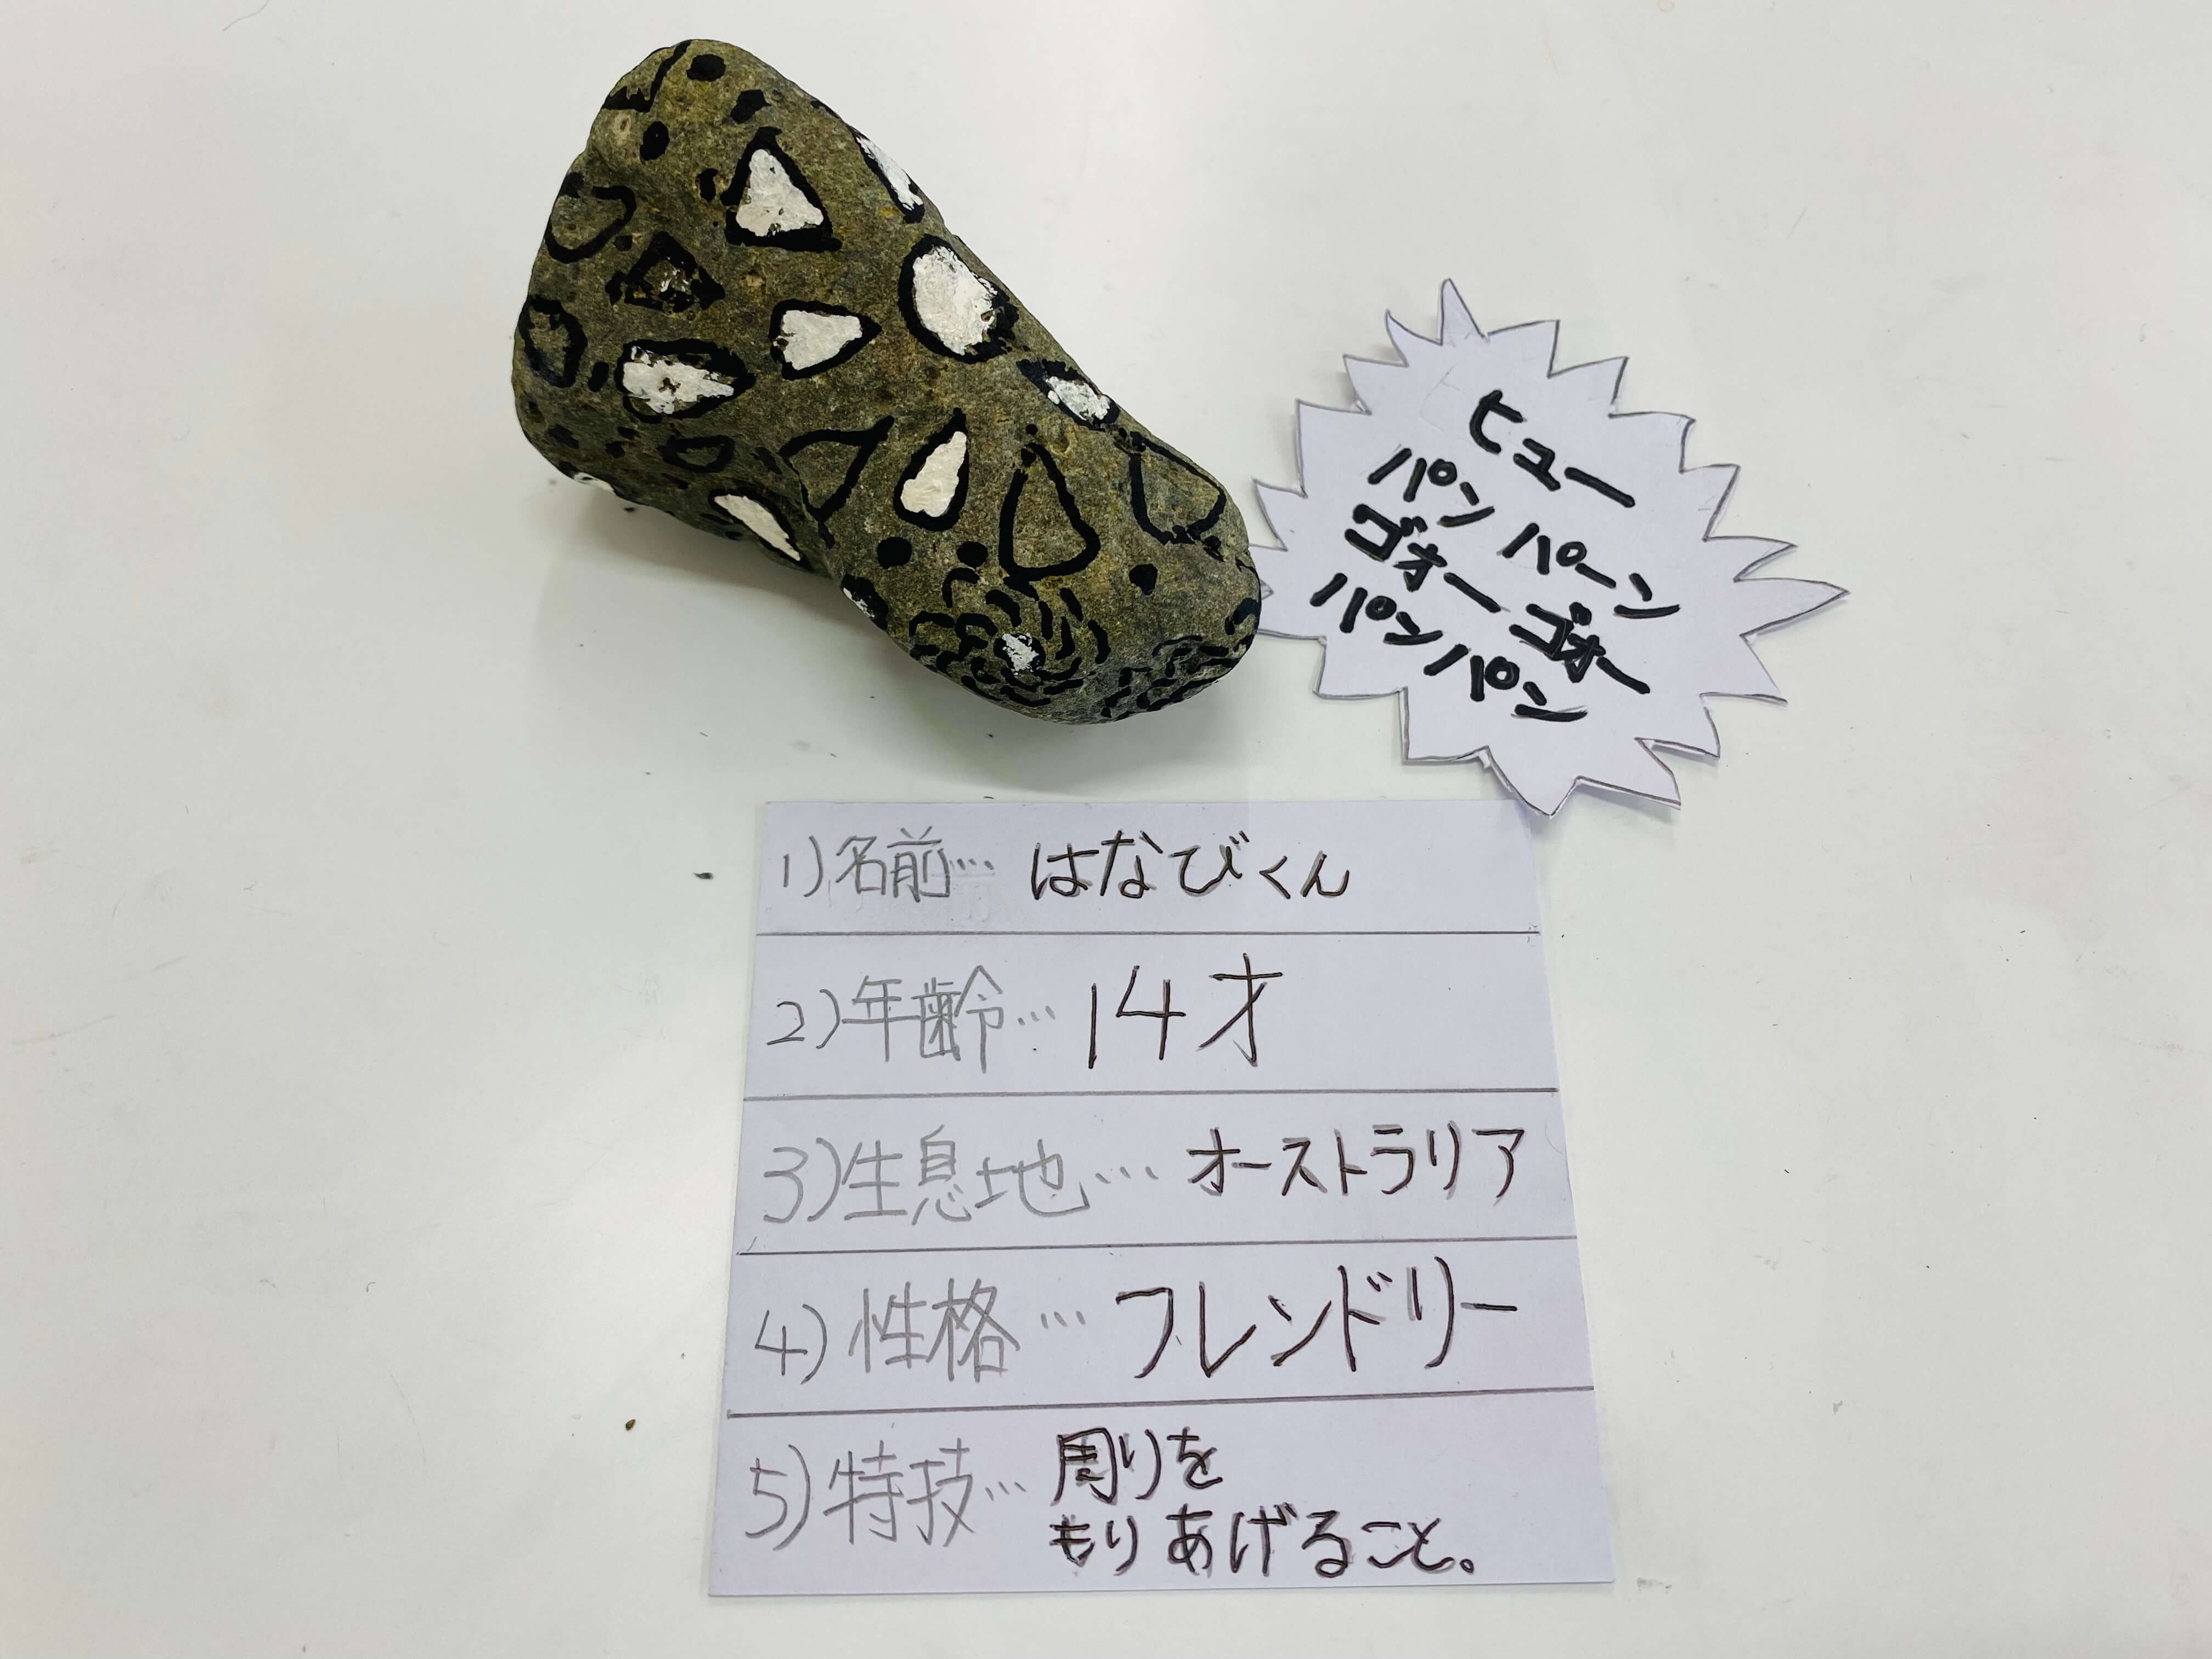 ヒュー
パン パーン
ゴォー ゴォー
パンパン
1)名前… はなびくん
2)年齢… 14才
3)生息地… オーストラリア
4)性格… フレンドリー
5)特技… 周りを
もりあげること。